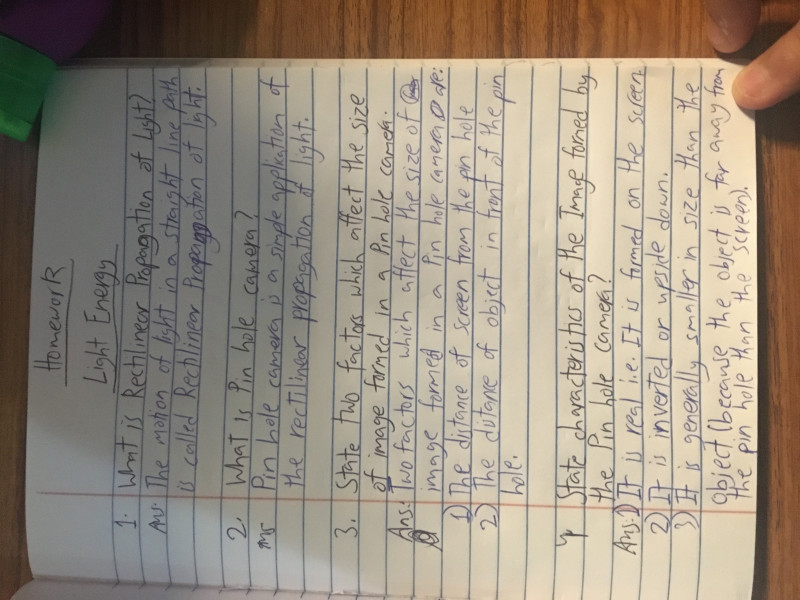 Homework
Light Energy
1. What is Rectilinear Propagation of Light?
Ans. The motion of light in a straight line path
is called Rectilinear Propagation of light.
2. What is Pin hole camera?
Ans Pin hole camera is a simple application of
the rectilinear propagation of light.
3. State two factors which affect the size
of image formed in a Pin hole camera.
Ans: Two factors which affect the size of
image formed in a Pin hole camera are:
1) The distance of screen from the pin hole
2) The distance of object in front of the pin
hole.
4 State characteristics of the Image formed by
the Pin hole camera?
Ans: 1) It is real i.e. It is formed on the screen
2) It is inverted or upside down.
3) It is generally smaller in size than the
object (because the object is far away from
the pin hole than the screen).